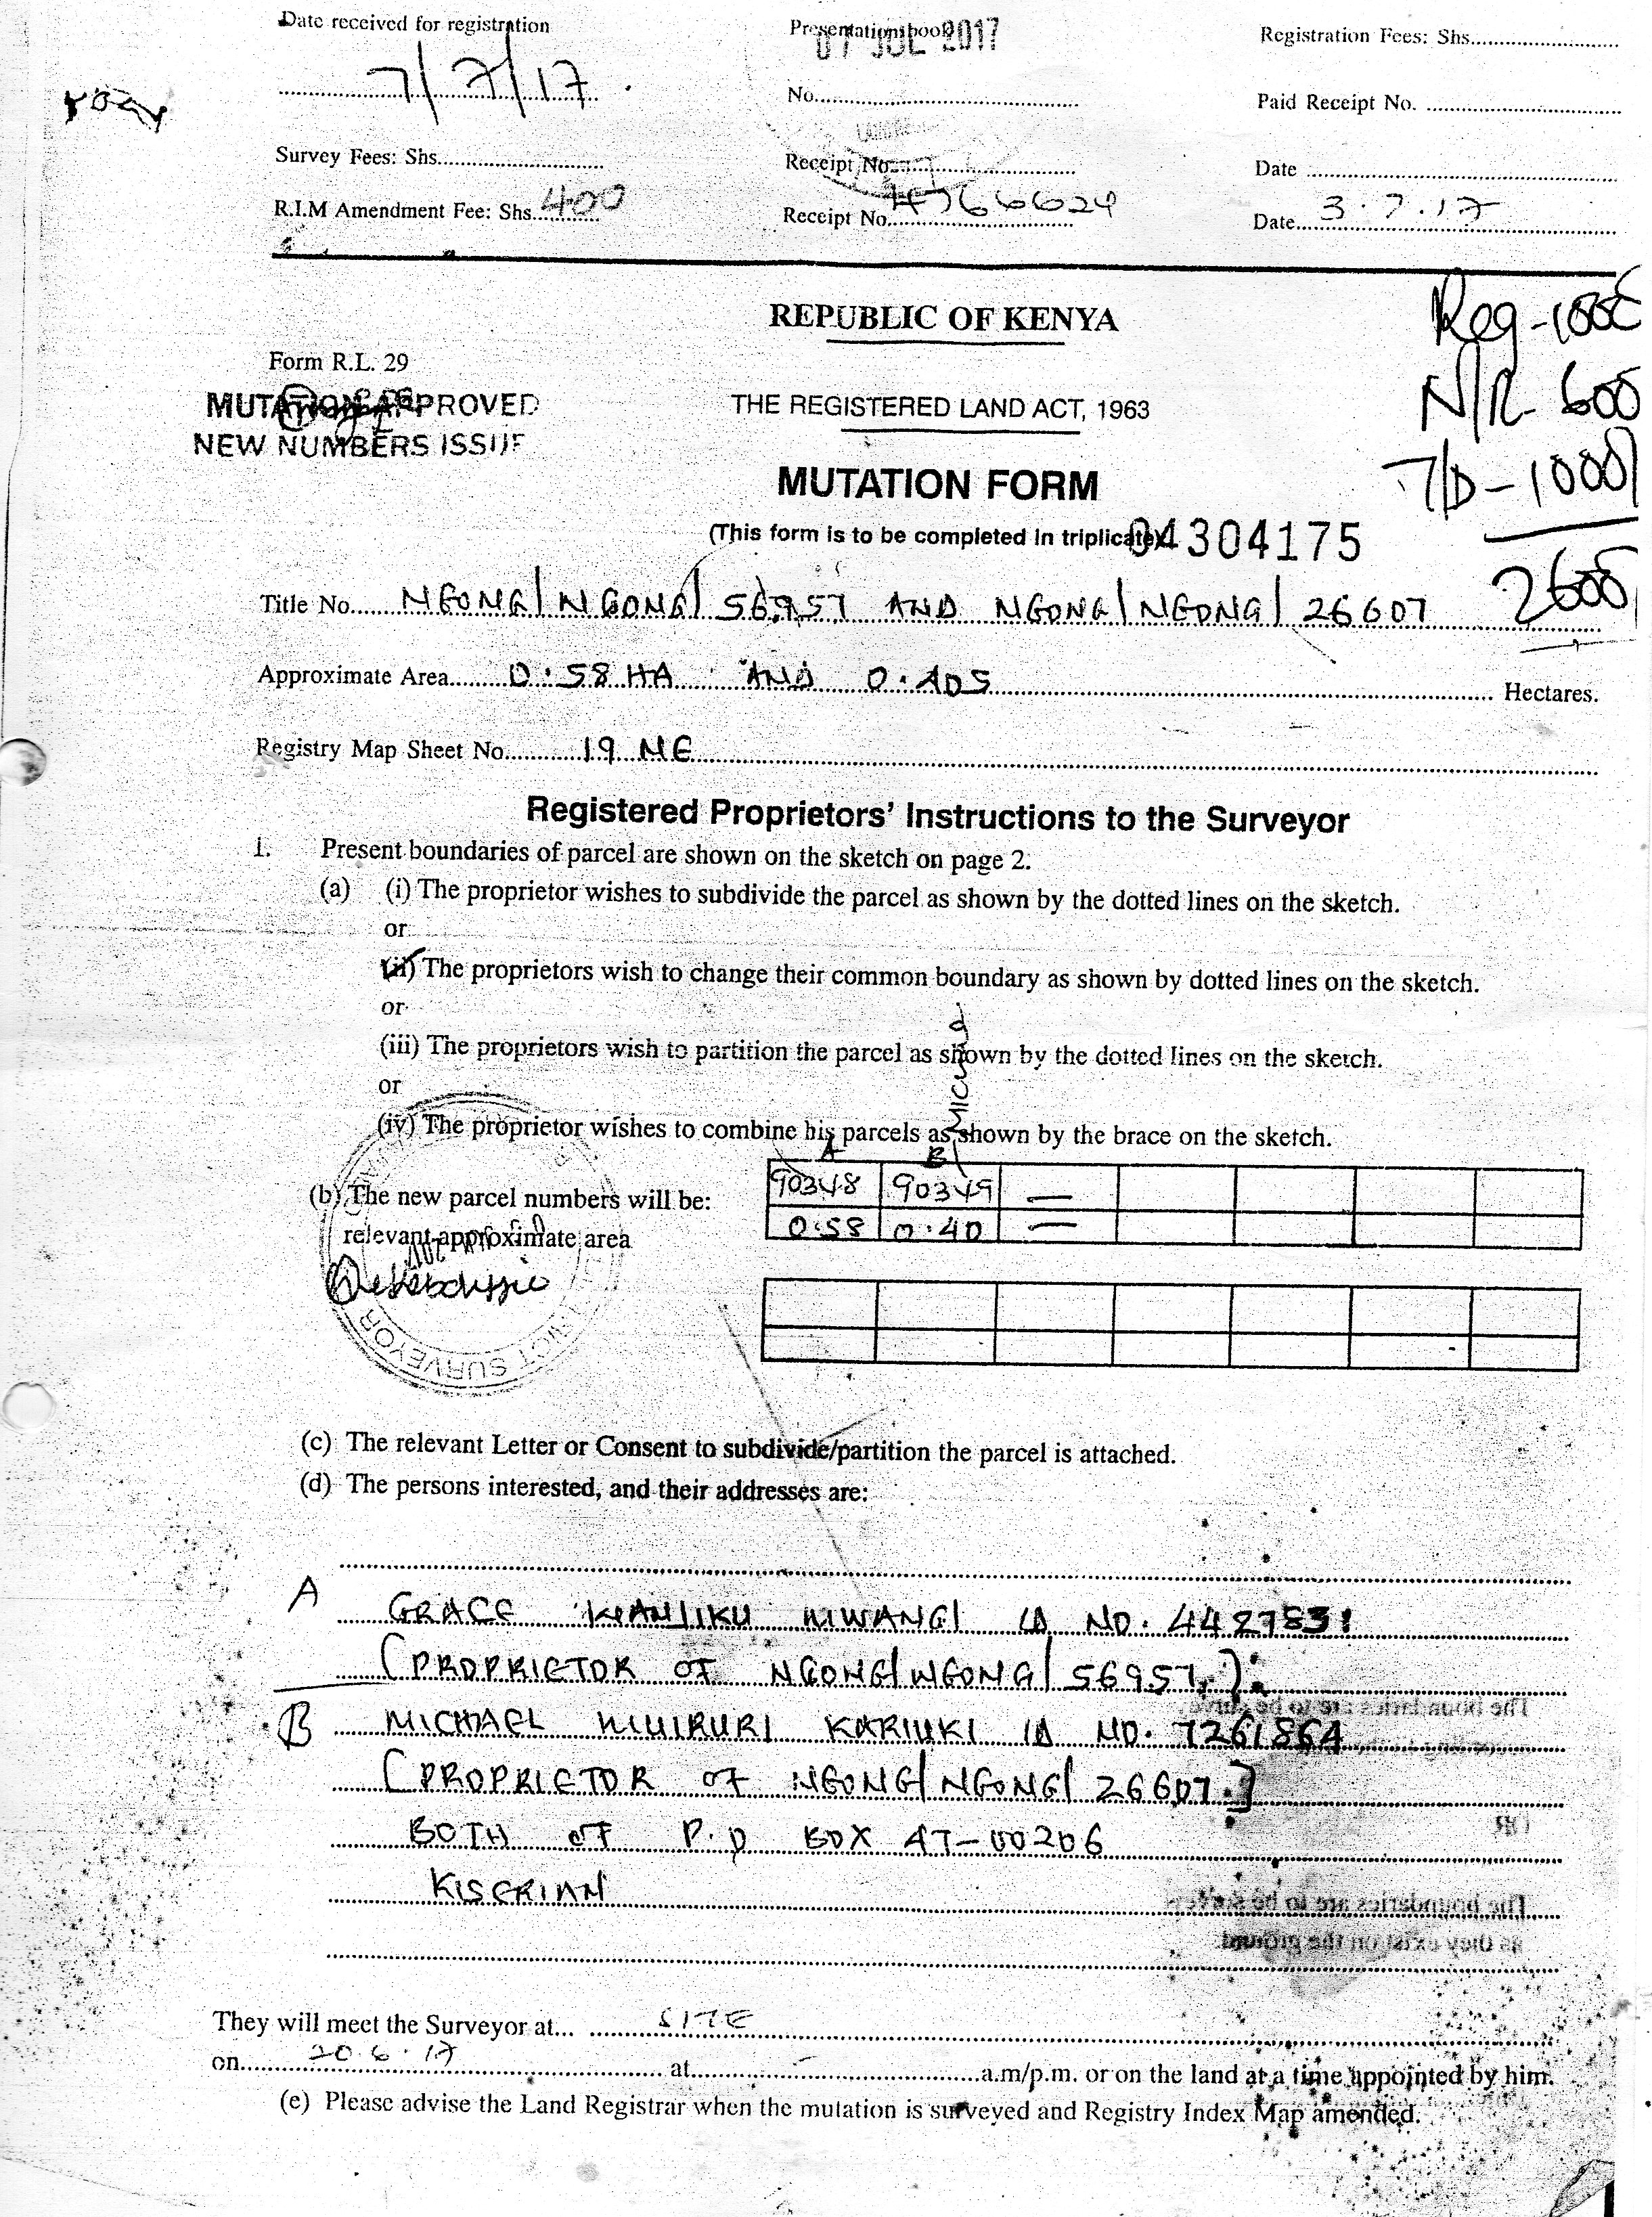 Date received for registration
Presentation book
07 JUL 2017
Registration Fees: Shs
7/7/17
No
Paid Receipt No.
Survey Fees: Shs
Receipt No
Date
R.I.M Amendment Fee: Shs 400
Receipt No 4766624
Date 3.7.17
REPUBLIC OF KENYA
Reg-1000
Form R.L. 29
MUTATION APPROVED
NEW NUMBERS ISSUE
THE REGISTERED LAND ACT, 1963
N/R- 600
MUTATION FORM
7/D-1000
(This form is to be completed in triplicate) 04304175
2600
Title No NGONG/NGONG/56957 AND NGONG/NGONG/26607
Approximate Area 0.58 HA AND 0.405 Hectares.
Registry Map Sheet No 19 NE
Registered Proprietors' Instructions to the Surveyor
1. Present boundaries of parcel are shown on the sketch on page 2.
(a) (i) The proprietor wishes to subdivide the parcel as shown by the dotted lines on the sketch.
or
(ii) The proprietors wish to change their common boundary as shown by dotted lines on the sketch.
or
(iii) The proprietors wish to partition the parcel as shown by the dotted lines on the sketch.
or
(iv) The proprietor wishes to combine his parcels as shown by the brace on the sketch.
A B
(b) The new parcel numbers will be: 90348 90349 —
relevant approximate area 0.58 0.40 —
SURVEYOR
(c) The relevant Letter or Consent to subdivide/partition the parcel is attached.
(d) The persons interested, and their addresses are:
A GRACE WANJIKU MWANGI ID NO. 4427831
(PROPRIETOR OF NGONG/NGONG/56957).
B MICHAEL MUIRURI KARIUKI ID NO. 7261864
[PROPRIETOR OF NGONG/NGONG/26607.]
BOTH OF P.O BOX 47-00206
KISERIAN
They will meet the Surveyor at... SITE
on 20.6.17 at - a.m/p.m. or on the land at a time appointed by him.
(e) Please advise the Land Registrar when the mutation is surveyed and Registry Index Map amended.